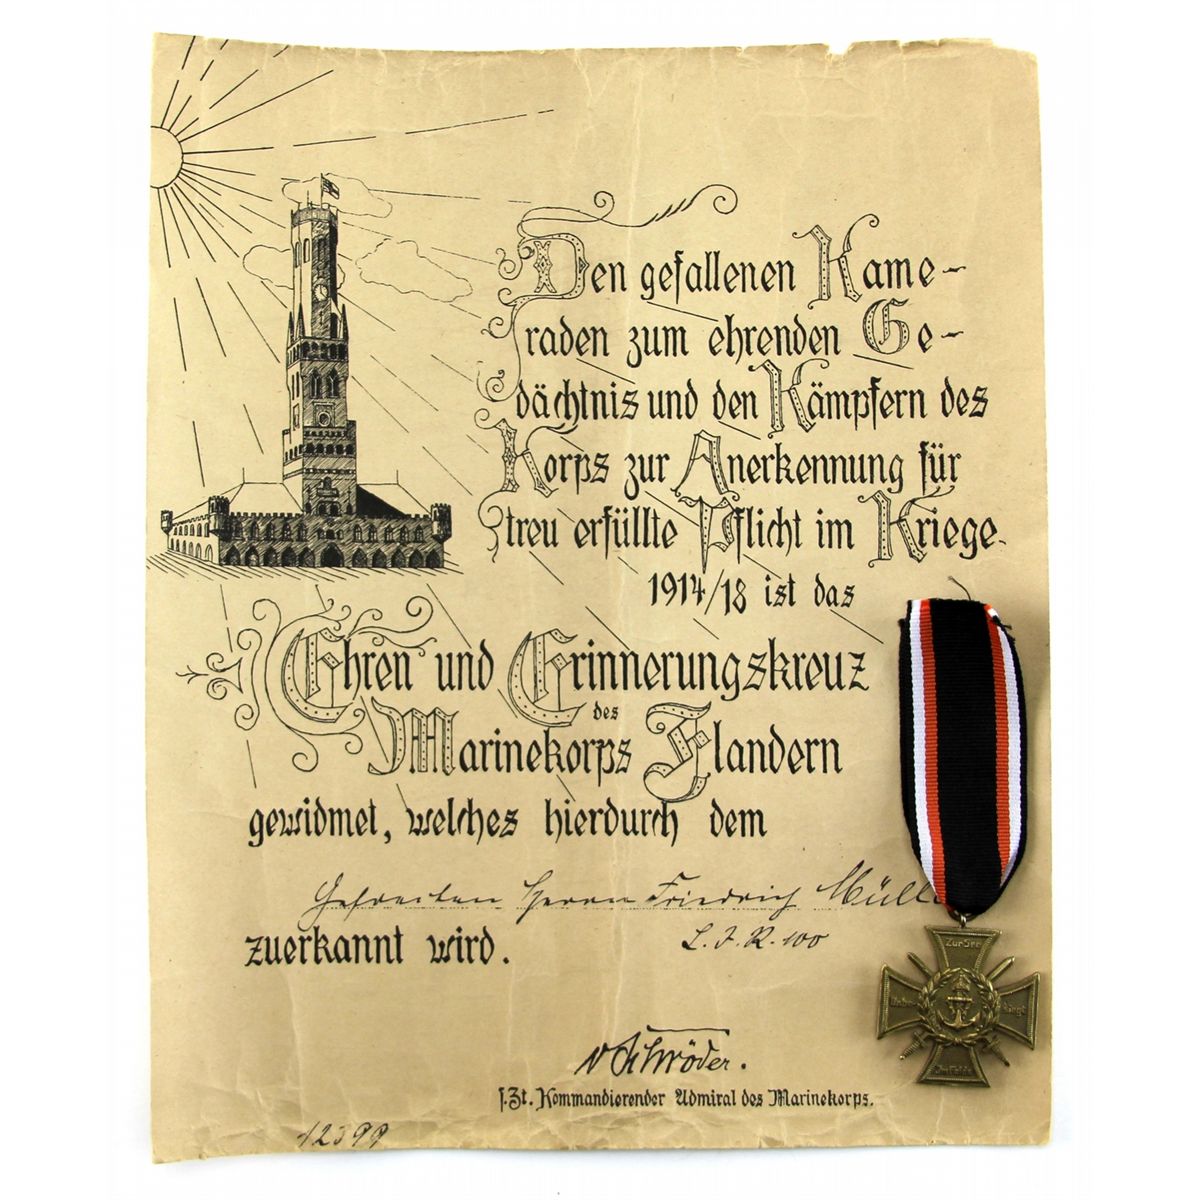 Den gefallenen Kame-
raden zum ehrenden Ge-
dächtnis und den Kämpfern des
Korps zur Anerkennung für
treu erfüllte Pflicht im Kriege
1914/18 ist das
Ehren und Erinnerungskreuz
des
Marinekorps Flandern
gewidmet, welches hierdurch dem
Gefreiten Herrn Friedrich Müll
zuerkannt wird.
L. J. R. 100
v Schröder.
s. Zt. Kommandierender Admiral des Marinekorps.
12399
Zur See
Unbe- siegt
Im Felde